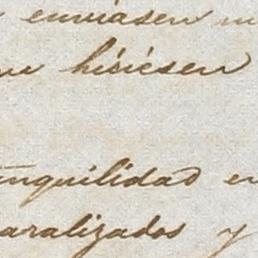 enviasen
hisiesen
anquilidad en
aralizados y